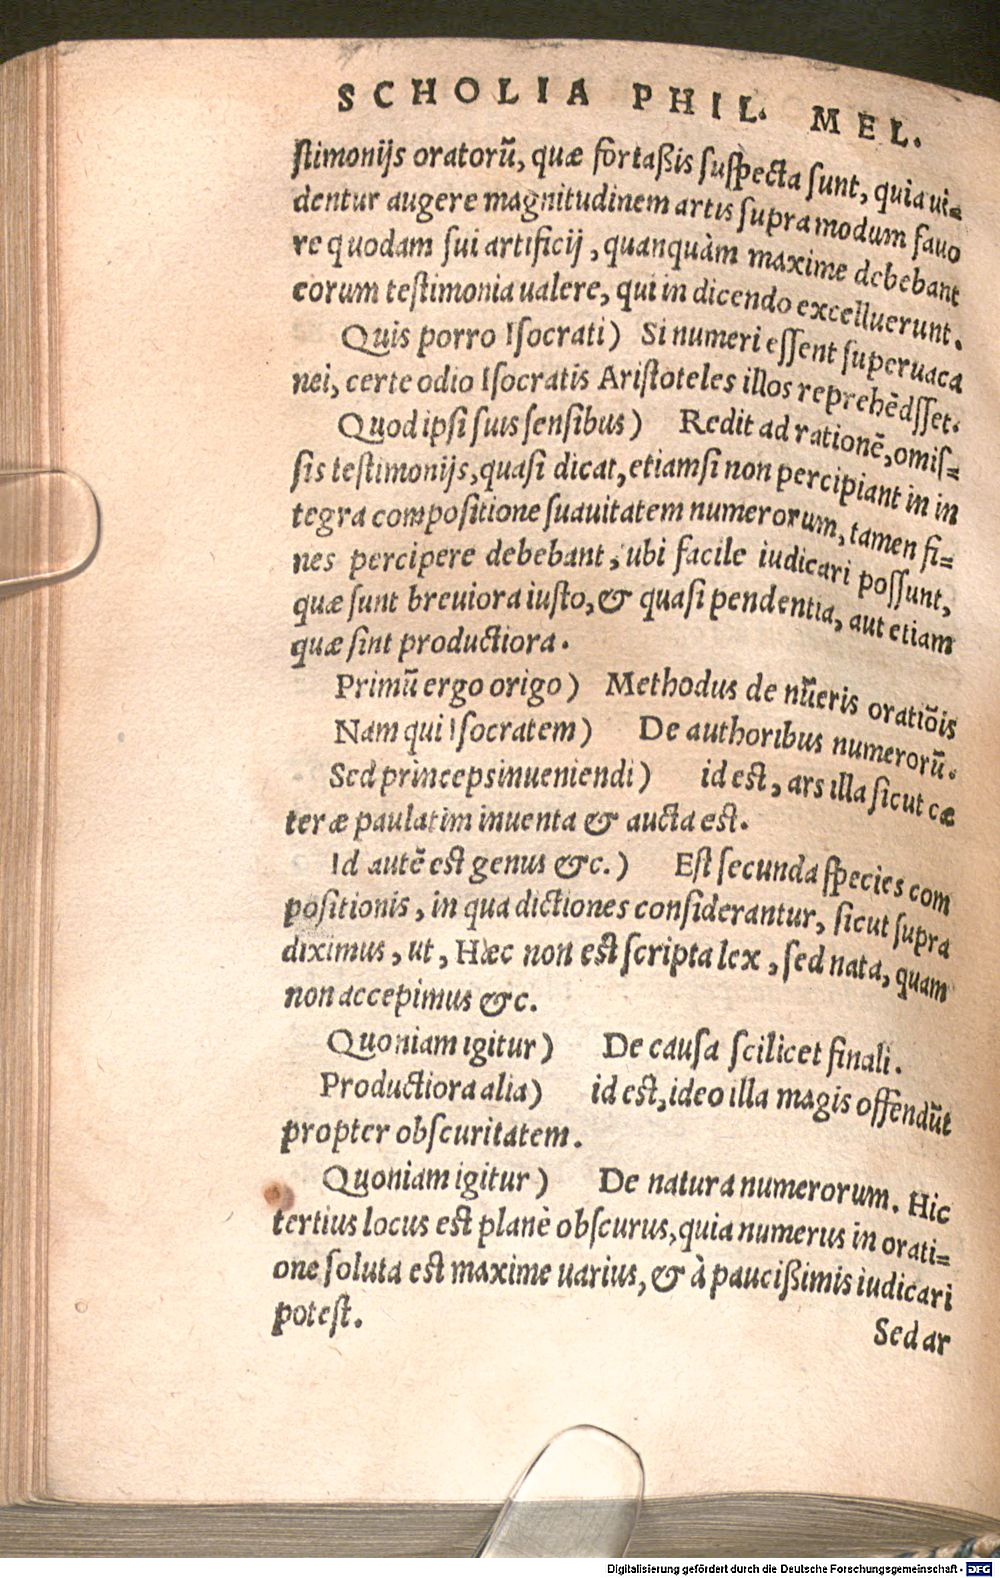 SCHOLIA PHIL. MEL.
stimonijs oratorū, quæ fortaßis suspecta sunt, quia ui=
dentur augere magnitudinem artis supra modum fauo
re quodam sui artificij, quanquàm maxime debebant
eorum testimonia ualere, qui in dicendo excelluerunt.
Quis porro Isocrati) Si numeri essent superuaca
nei, certe odio Isocratis Aristoteles illos reprehēdsset.
Quod ipsi suis sensibus) Redit ad rationē, omis=
sis testimonijs, quasi dicat, etiamsi non percipiant in in
tegra compositione suauitatem numerorum, tamen fi=
nes percipere debebant, ubi facile iudicari possunt,
quæ sunt breuiora iusto, & quasi pendentia, aut etiam
quæ sint productiora.
Primū ergo origo) Methodus de nūeris oratiōis
Nam qui Isocratem) De authoribus numerorū.
Sed princeps inueniendi) id est, ars illa sicut cæ
teræ paulatim inuenta & aucta est.
Id autē est genus &c.) Est secunda species com
positionis, in qua dictiones considerantur, sicut supra
diximus, ut, Hæc non est scripta lex, sed nata, quam
non accepimus &c.
Quoniam igitur) De causa scilicet finali.
Productiora alia) id est, ideo illa magis offendūt
propter obscuritatem.
Quoniam igitur) De natura numerorum. Hic
tertius locus est planè obscurus, quia numerus in orati=
one soluta est maxime uarius, & à paucißimis iudicari
potest.
Sed ar
Digitalisierung gefördert durch die Deutsche Forschungsgemeinschaft - DFG